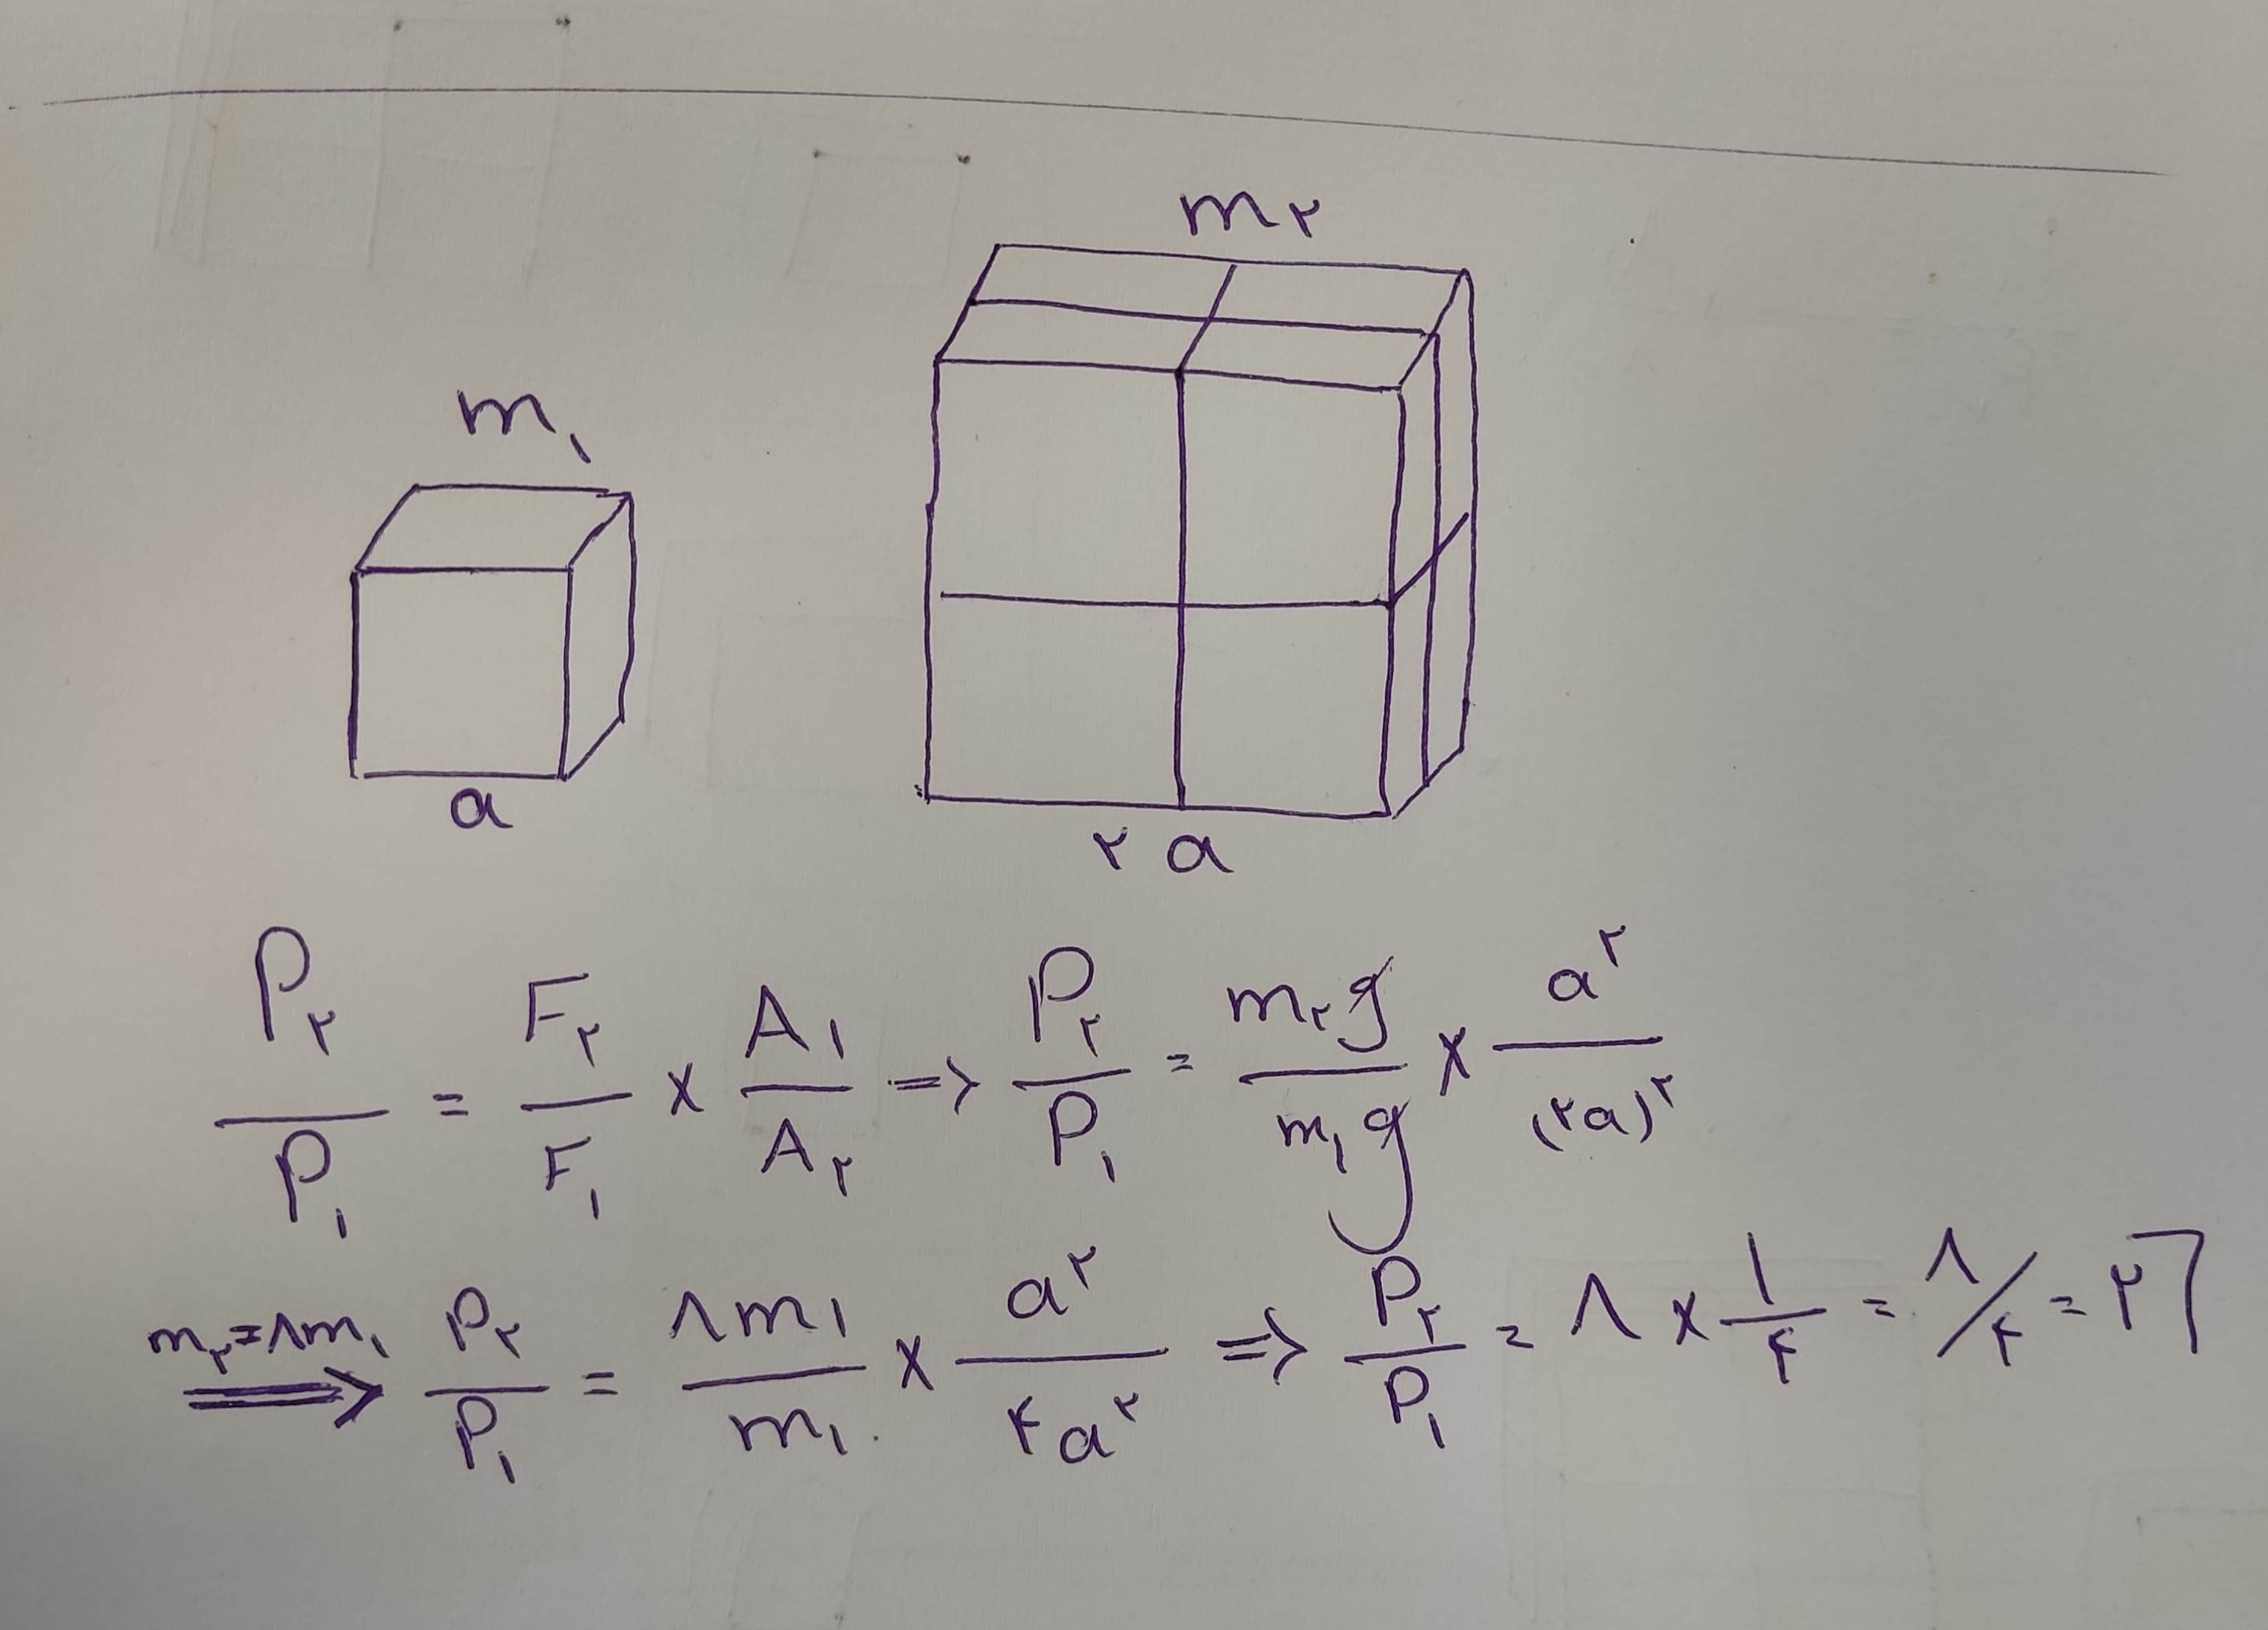 m۱
m۲
a
۲a
P۲/P۱ = F۲/F۱ × A۱/A۲ => P۲/P۱ = m۲g/m۱g × a²/(۲a)²
m۲=۸m۱ => P۲/P۱ = ۸m۱/m۱ × a²/۴a² => P۲/P۱ = ۸ × ۱/۴ = ۸/۴ = ۲